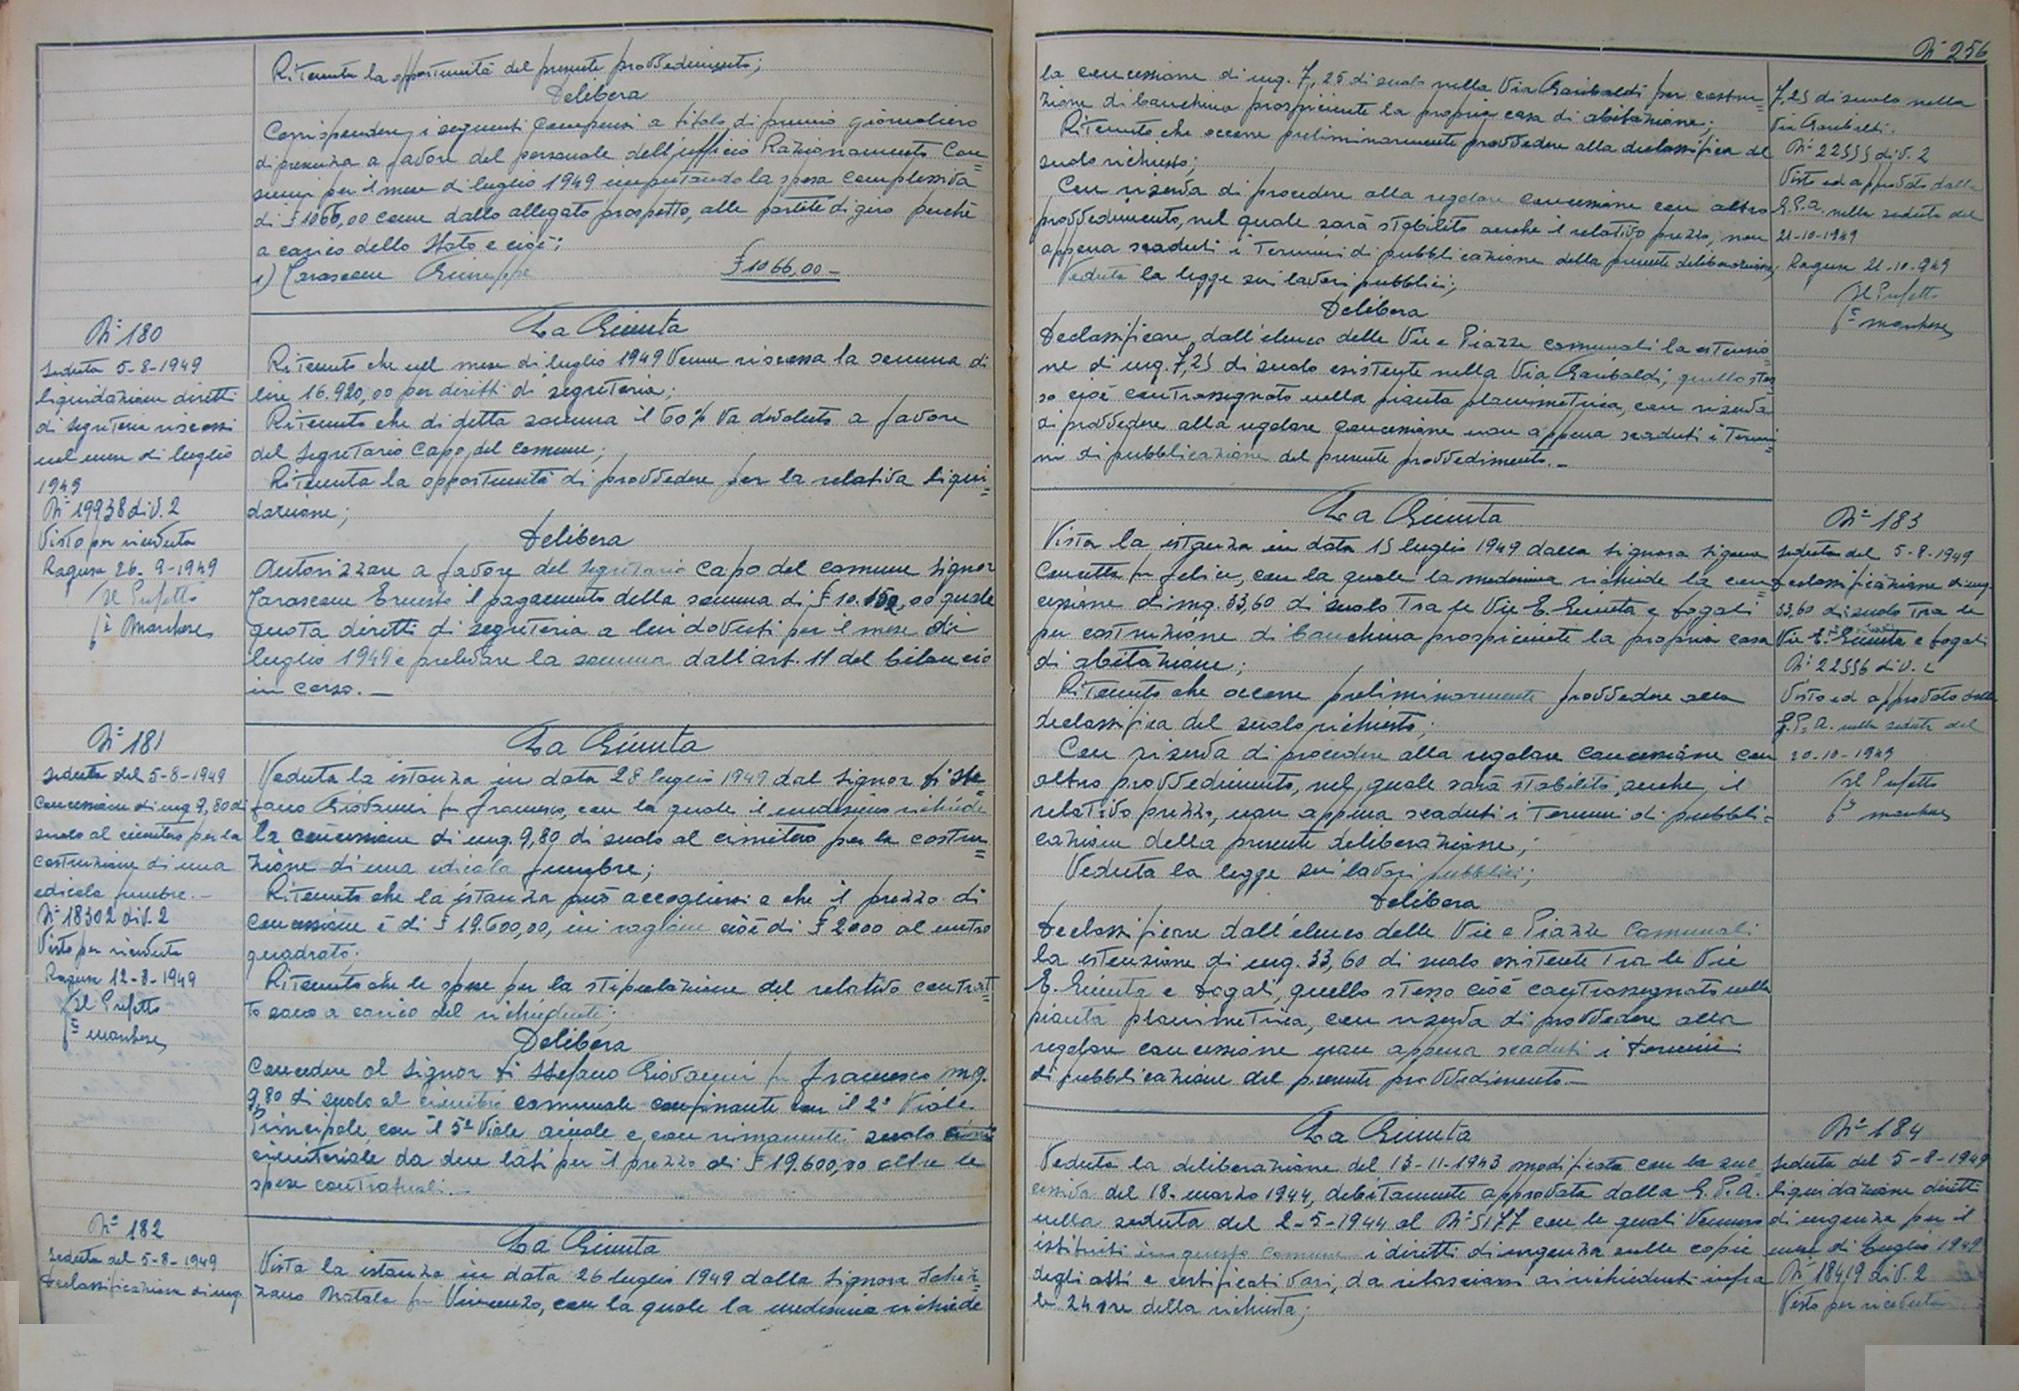 Ritenuta la opportunità del presente provvedimento;
Delibera
Corrispondere, i seguenti compensi a titolo di premio giornaliero
di presenza a favore del personale dell'ufficio Razionamento Con=
sumi per il mese di luglio 1949 imputando la spesa complessiva
di £ 1066,00 come dallo allegato prospetto, alle partite di giro perché
a carico dello Stato e cioè;
1) Tarascone Giuseppe £ 1066,00 -
N° 180
Seduta 5-8-1949
liquidazione diritti
di segreteria riscossi
nel mese di luglio
1949
N° 19938 div. 2
Visto per ricevuta
Ragusa 26-9-1949
Il Prefetto
f° Marchese
La Giunta
Ritenuto che nel mese di luglio 1949 venne riscossa la somma di
lire 16.920,00 per diritti di segreteria;
Ritenuto che di detta somma il 60% va devoluto a favore
del Segretario Capo del comune;
Ritenuta la opportunità di provvedere per la relativa liqui=
dazione;
Delibera
Autorizzare a favore del Segretario Capo del comune Signor
Tarascone Ernesto il pagamento della somma di £ 10.150,00 quale
quota diritti di segreteria a lui dovuti per il mese di
luglio 1949 e prelevare la somma dall'art. 11 del bilancio
in corso. _
N° 181
Seduta del 5-8-1949
Concessione di mq 9,80 di
suolo al cimitero per la
costruzione di una
edicola funebre. -
N° 18302 div. 2
Visto per ricevuta
Ragusa 12-8-1949
Il Prefetto
f° Marchese
La Giunta
Veduta la istanza in data 28 luglio 1949 dal Signor Di Ste=
fano Giovanni fu Francesco, con la quale il medesimo richiede
la concessione di mq. 9,80 di suolo al cimitero per la costru=
zione di una edicola funebre;
Ritenuto che la istanza può accogliersi e che il prezzo di
concessione è di £ 19.600,00, in ragione cioè di £ 2000 al metro
quadrato;
Ritenuto che le spese per la stipulazione del relativo contrat=
to sono a carico del richiedente;
Delibera
Concedere al Signor Di Stefano Giovanni fu Francesco mq.
9,80 di suolo al cimitero comunale confinante con il 2° Viale
Principale, con il 5° Viale e con rimanente suolo
cimiteriale da due lati per il prezzo di £ 19.600,00 oltre le
spese contrattuali. _
N° 182
Seduta del 5-8-1949
Declassificazione di mq.
La Giunta
Vista la istanza in data 26 luglio 1949 dalla Signora
Natala fu Vincenzo, con la quale la medesima richiede
N° 256
la concessione di mq. 7,25 di suolo nella Via Garibaldi per costru=
zione di banchina prospiciente la propria casa di abitazione;
Ritenuto che occorre preliminarmente provvedere alla declassifica del
suolo richiesto;
Con riserva di procedere alla regolare concessione con altro
provvedimento, nel quale sarà stabilito anche il relativo prezzo, non
appena scaduti i termini di pubblicazione della presente deliberazione;
Veduta la legge sui lavori pubblici;
Delibera
Declassificare, dall'elenco delle Vie e Piazze comunali la estensio=
ne di mq. 7,25 di suolo esistente nella Via Garibaldi, quello stes=
so cioè contrassegnato nella pianta planimetrica, con riserva
di provvedere alla regolare concessione non appena scaduti i termi=
ni di pubblicazione del presente provvedimento. _
7,25 di suolo nella
Via Garibaldi.
N° 22555 div. 2
Visto ed approvato dalla
G.P.A. nella seduta del
21-10-1949
Ragusa 21-10-949
Il Prefetto
f° Marchese
La Giunta
Vista la istanza in data 15 luglio 1949 dalla Signora
Concetta fu Felice, con la quale la medesima richiede la con=
cessione di mq. 33,60 di suolo tra le Vie E. Giunta e Dogali
per costruzione di banchina prospiciente la propria casa
di abitazione;
Ritenuto che occorre preliminarmente provvedere alla
declassifica del suolo richiesto;
Con riserva di procedere alla regolare concessione con
altro provvedimento, nel quale sarà stabilito, anche il
relativo prezzo, non appena scaduti i termini di pubbli=
cazione della presente deliberazione;
Veduta la legge sui lavori pubblici;
Delibera
Declassificare dall'elenco delle Vie e Piazze Comunali
la estensione di mq. 33,60 di suolo esistente tra le Vie
E. Giunta e Dogali, quello stesso cioè contrassegnato nella
pianta planimetrica, con riserva di provvedere alla
regolare concessione non appena scaduti i termini
di pubblicazione del presente provvedimento _
N° 183
Seduta del 5-8-1949
Declassificazione di mq.
33,60 di suolo tra le
Vie E. Giunta e Dogali
N° 22556 div. 2
Visto ed approvato dalla
G.P.A. nella seduta del
20-10-1949
Il Prefetto
f° Marchese
La Giunta
Veduta la deliberazione del 13-11-1943 modificata con la suc=
cessiva del 18 marzo 1944, debitamente approvata dalla G.P.A.
nella seduta del 2-5-1944 al N° 5177 con le quali vennero
istituiti in questo comune i diritti di urgenza sulle copie
degli atti e certificati vari, da rilasciarsi ai richiedenti infra
le 24 ore della richiesta;
N° 184
Seduta del 5-8-1949
liquidazione diritti
di urgenza per il
mese di Luglio 1949
N° 18419 div. 2
Visto per ricevuta